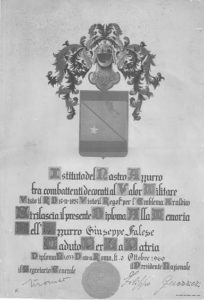 Istituto del Nastro Azzurro
fra combattenti decorati al Valor Militare
Visto il R.D. Visto il Reg. per l'Emblema Araldico
Si rilascia il presente Diploma Alla Memoria
Dell' Azzurro Giuseppe Falese
Caduto Per La Patria
Diploma Data Roma, lì Ottobre
Il Segretario Generale Il Presidente Nazionale